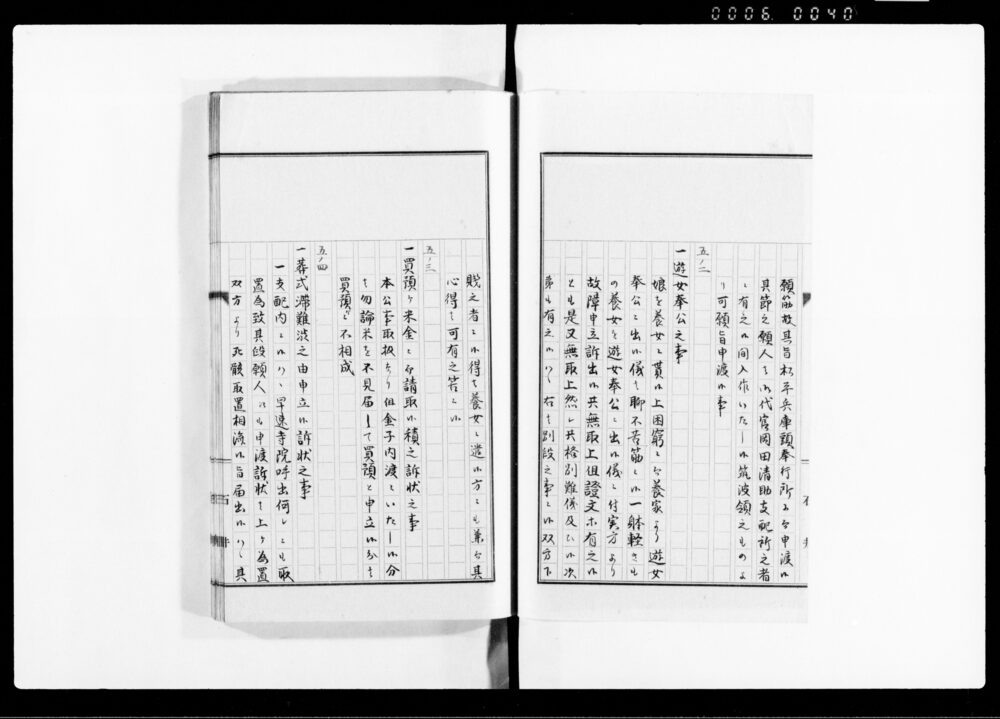 0006. 0040
願筋故其旨松平兵庫頭奉行所ニ而申渡ㇵ
其節之願人ハ御代官岡田清助支配所之者
ニ有之ㇵ間入作いたしㇵ筑波領之もの
可願旨申渡ㇵ事
五ノ二
一遊女奉公之事
娘を養女ニ貰ㇵ上困窮ニ而養家より遊女
奉公ニ出ㇵ儀ハ聊不苦筋ニㇵ一躰軽きもの
の養女を遊女奉公ニ出ㇵ儀ニ付実方より
故障申立訴出ㇵ共無取上但證文ホ有之ㇵ
とも是又無取上然レ共格別難儀及ひㇵ次
第も有之ㇵハヽ右ハ別段之事ニㇵ双方下
賤之者ニㇵ得ハ養女ニ遣ㇵ方ニも兼而其
心得ハ可有之筈ニㇵ
五ノ三
一買預ケ米金ニ而請取ㇵ積之訴状之事
本公事取扱なり但金子内渡ニいたしㇵ分
ハ勿論米を不見届して買預と申立ㇵ分ハ
買預ニ不相成
五ノ四
一葬式滞難渋之由申立ㇵ訴状之事
一支配内ニㇵハヽ早速寺院呼出何レとも取
置為致其段願人江も申渡訴状ハ上ケ為置
双方より死骸取置相済ㇵ旨届出ㇵハヽ其